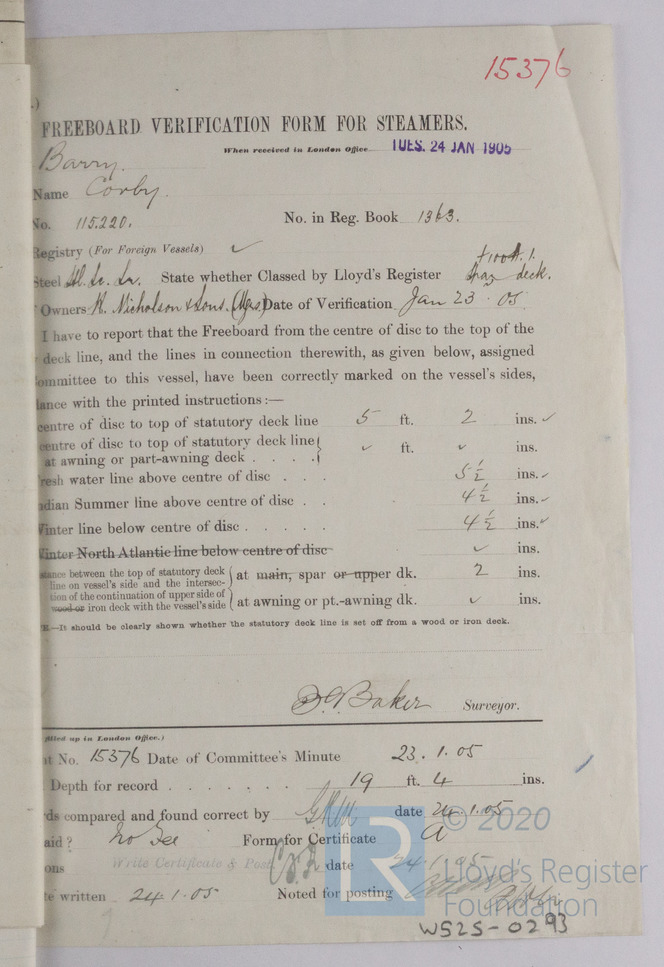 15376
FREEBOARD VERIFICATION FORM FOR STEAMERS.
When received in London Office TUES. 24 JAN 1905
Barry.
Name Corby.
No. 115.220. No. in Reg. Book 1363.
Registry (For Foreign Vessels) ✓
+100A.1.
Steel Sc. Sr. State whether Classed by Lloyd's Register Spar deck.
Owners H. Nicholson & Sons. (Mgrs) Date of Verification Jan 23. 05.
I have to report that the Freeboard from the centre of disc to the top of the
deck line, and the lines in connection therewith, as given below, assigned
ommittee to this vessel, have been correctly marked on the vessel's sides,
dance with the printed instructions:—
centre of disc to top of statutory deck line 5 ft. 2 ins. ✓
centre of disc to top of statutory deck line ✓ ft. ✓ ins.
at awning or part-awning deck . . . .
resh water line above centre of disc . . . 5 ½ ins. ✓
ndian Summer line above centre of disc . . 4 ½ ins. ✓
Winter line below centre of disc . . . . . 4 ½ ins. ✓
Winter North Atlantic line below centre of disc ✓ ins.
stance between the top of statutory deck
line on vessel's side and the intersec- at main, spar or upper dk. 2 ins.
tion of the continuation of upper side of
wood or iron deck with the vessel's side at awning or pt.-awning dk. ✓ ins.
B.—It should be clearly shown whether the statutory deck line is set off from a wood or iron deck.
Baker Surveyor.
filled up in London Office.)
at No. 15376 Date of Committee's Minute 23.1.05
Depth for record . . . . . . . 19 ft. 4 ins.
rds compared and found correct by date 24.1.05
aid? No Fee Form for Certificate A
ons Write Certificate & Post date 24.1.05
te written 24.1.05 Noted for posting
© 2020
Lloyd's Register
Foundation
W525-0293